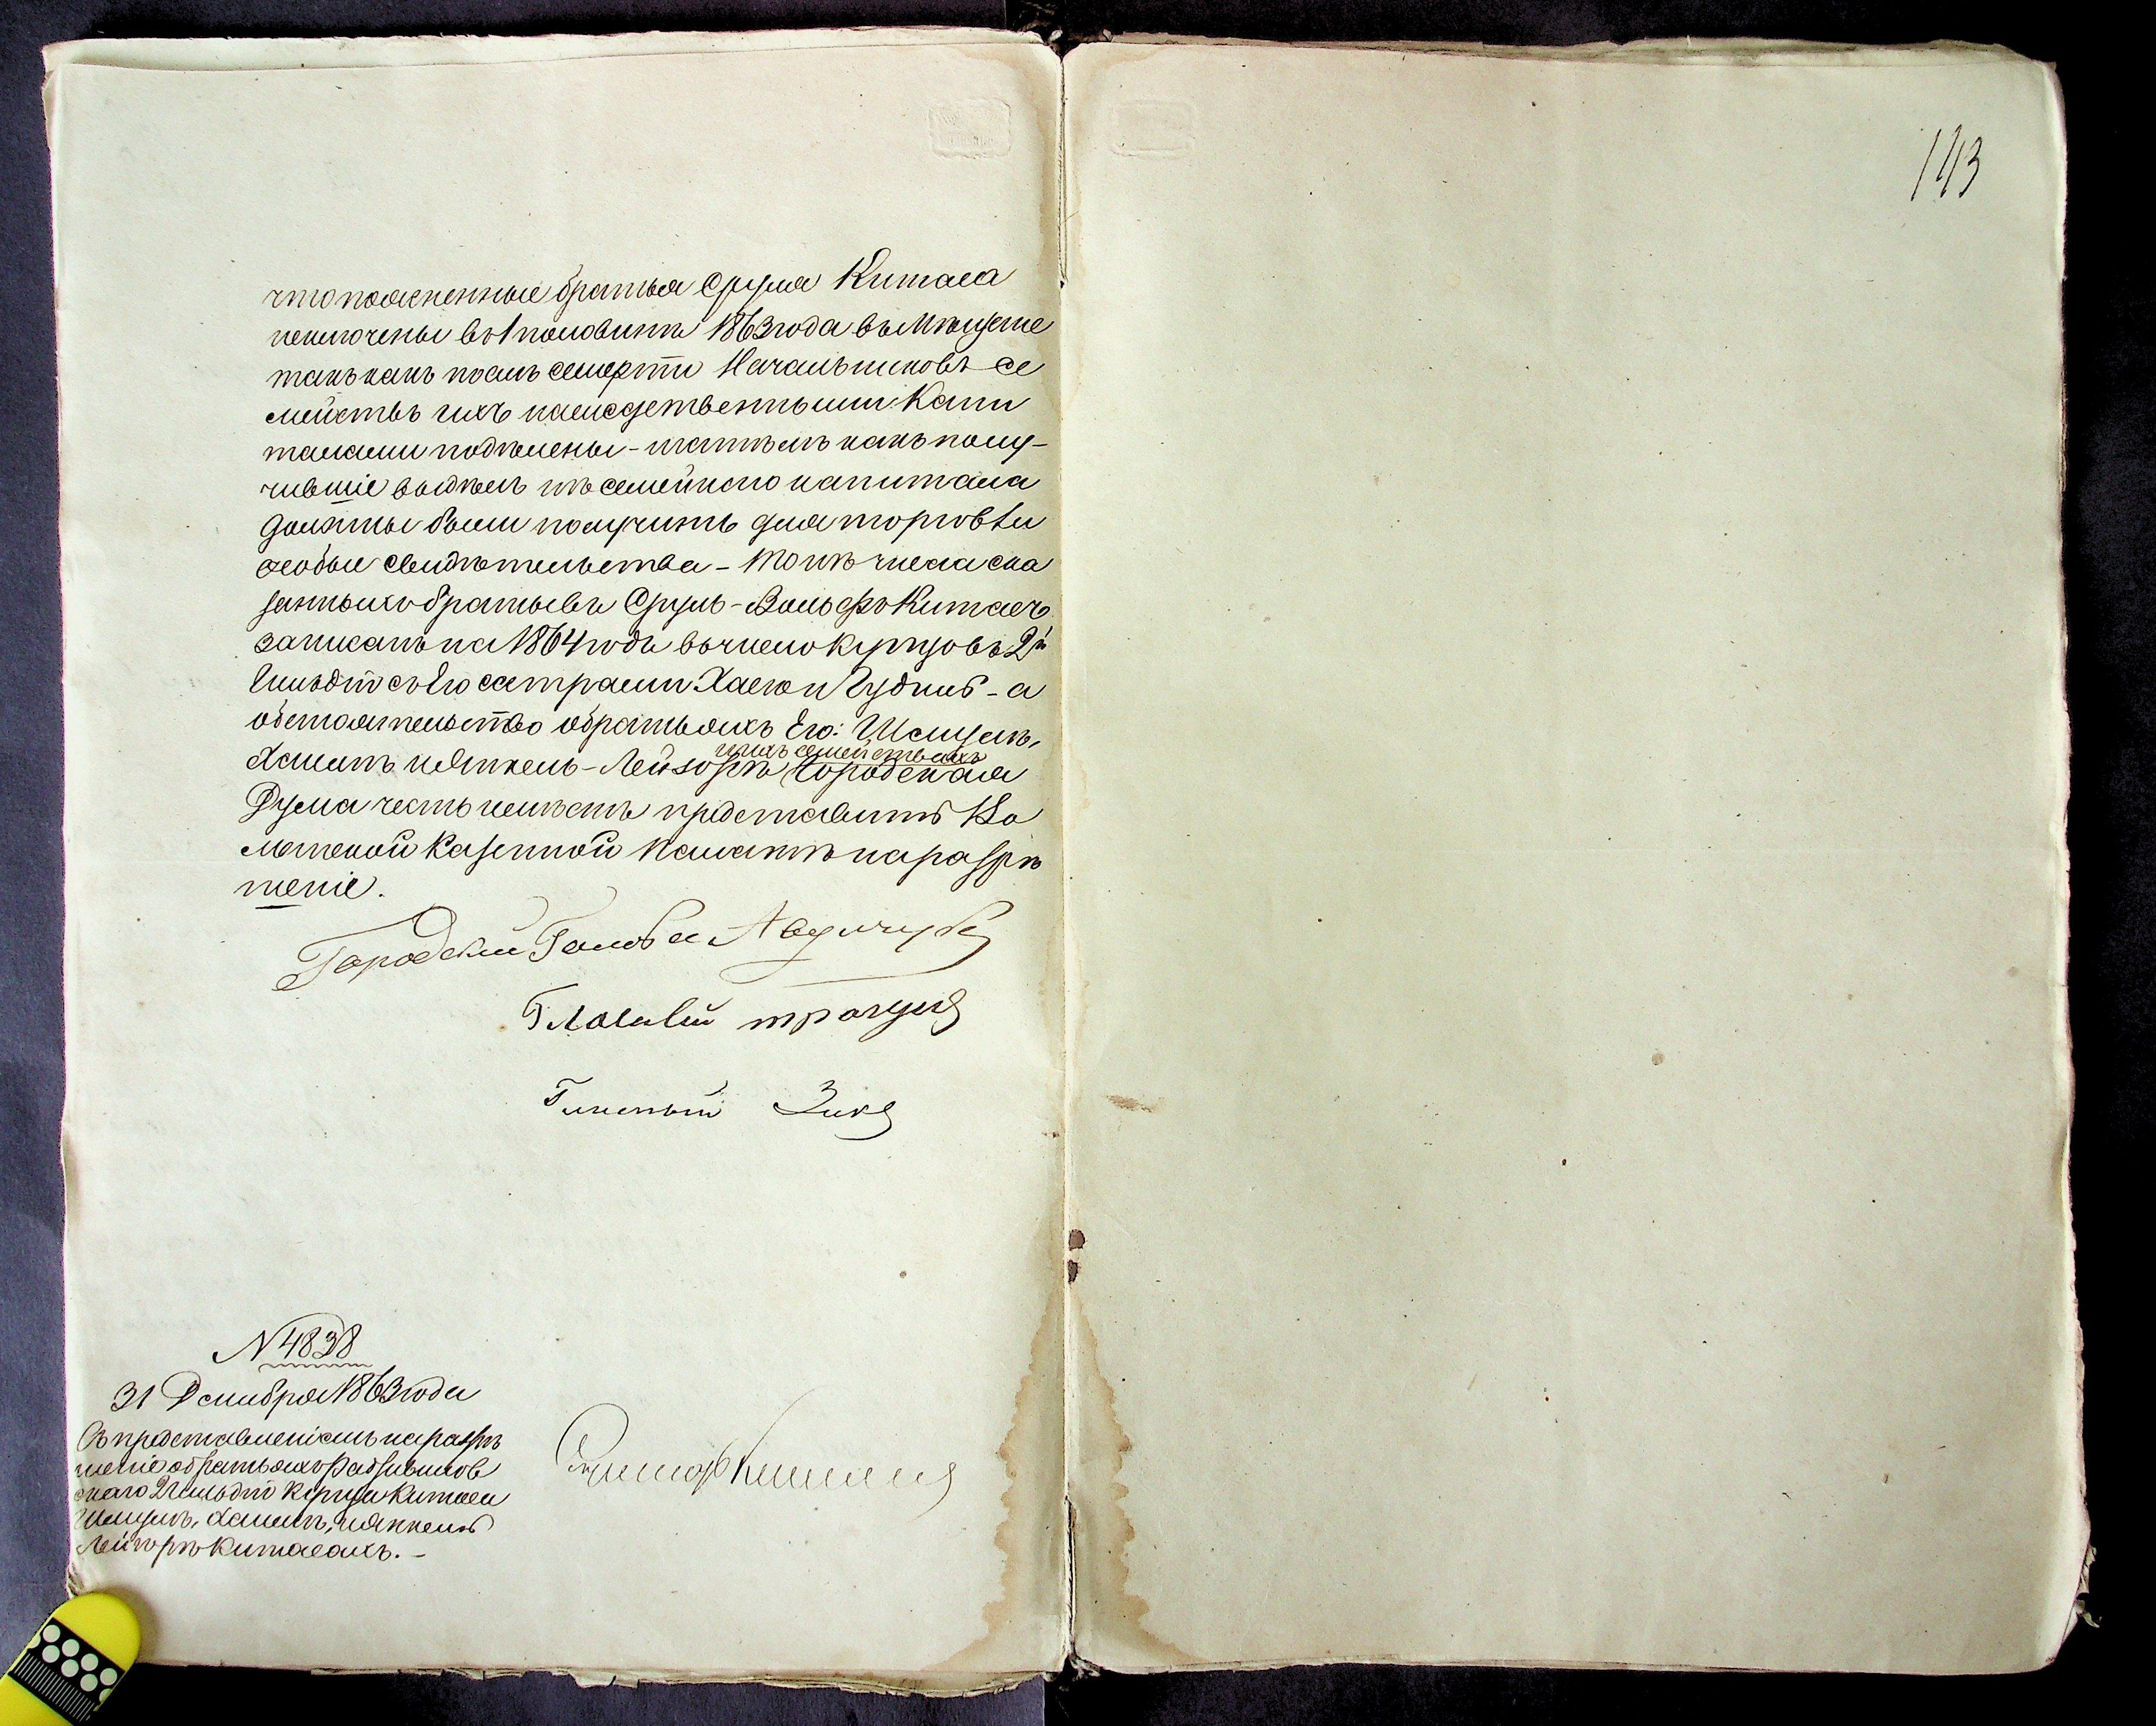 143
что поясненные братья Сруля Китаеа
исключены въ 1 половинѣ 1863 года въ Мѣщане
такъ какъ послѣ смерти Начальниковъ се
мействъ ихъ наслѣдственными Капи
талами подѣлены - и затѣмъ какъ полу-
чившіе выдѣлъ изъ семейного капитала
должны были получить для торговли
особые свидѣтельства - то изъ числа ска
занныхъ братьевъ Сруль-Вольфъ Китаечъ
записанъ на 1864 годъ въ число купцовъ 2й
Гильдіи съ Его сестрами Хаею и Гудисъ - а
обстоятельство о братьяхъ Его: Шмулѣ,
и ихъ семействахъ
Хаимѣ и Янкель-Лейзорѣ Городская
Дума честь имѣетъ представить Во
лынской Казенной Палатѣ на разрѣ
шеніе.
Городской Голова
Гласный
Гласный Зикъ
N 4838
31 Декабря 1863 года
Съ представленіемъ на разрѣ
шеніе о братьяхъ Радзивилов
скаго 2 Гильдіи Купца Китаеа
Шмулѣ, Хаимѣ, и Янкель
Лейзорѣ Китаеахъ. -